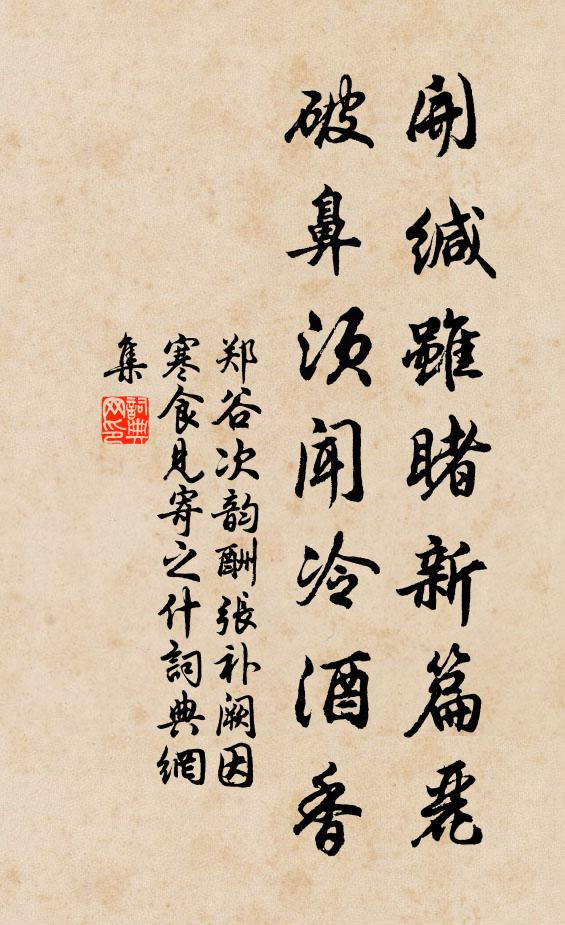 開緘雖睹新篇麗
破鼻須聞冷酒香
郑谷次韵酬張补阙因
寒食見寄之什詞典網
集
詞典
网印